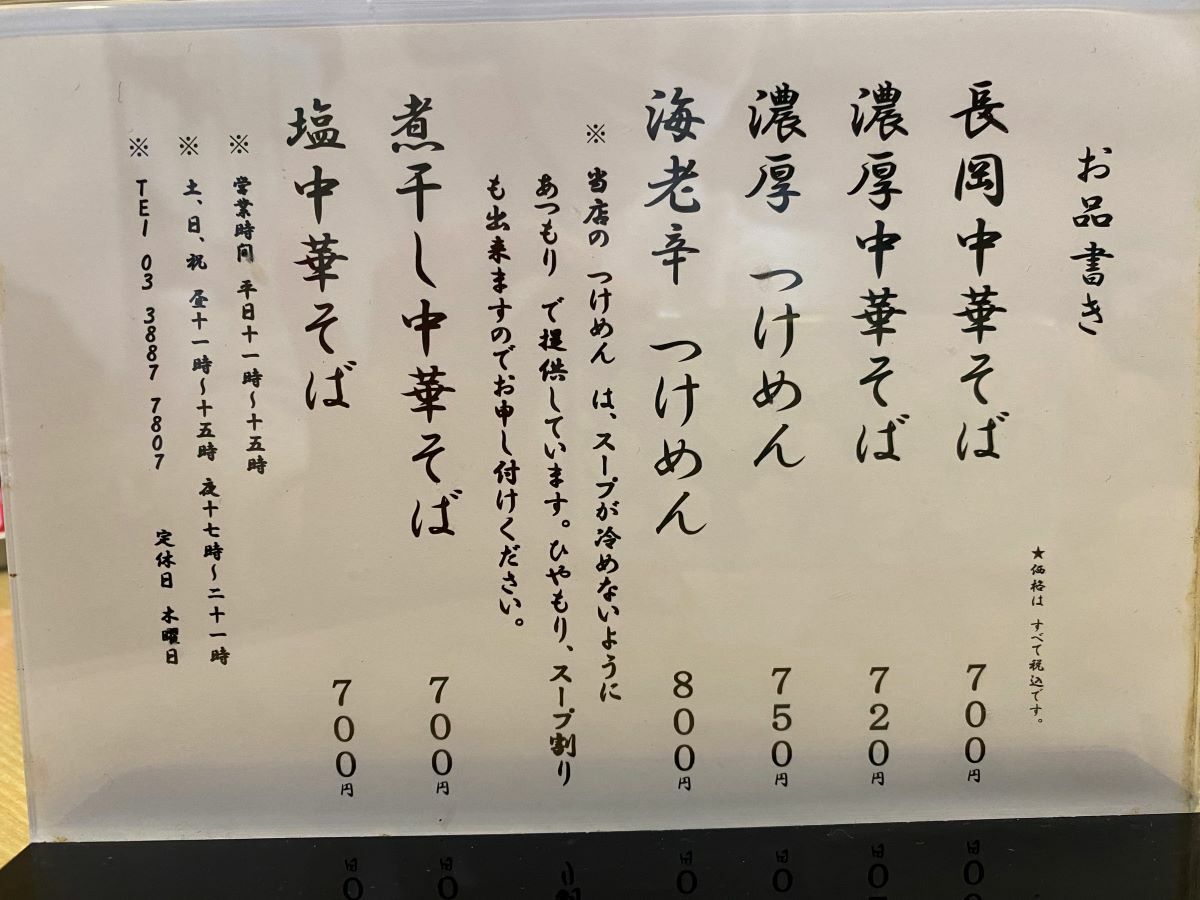 お品書き
★価格は すべて税込です。
長岡中華そば 700円
濃厚中華そば 720円
濃厚 つけめん 750円
海老辛 つけめん 800円
※ 当店の つけめん は、スープが冷めないように
あつもり で提供しています。ひやもり、スープ割り
も出来ますのでお申し付けください。
煮干し中華そば 700円
塩中華そば 700円
※ 営業時间 平日十一時～十五時
※ 土、日、祝 昼十一時～十五時 夜十七時～二十一時
※ TEl 03 3887 7807 定休日 木曜日